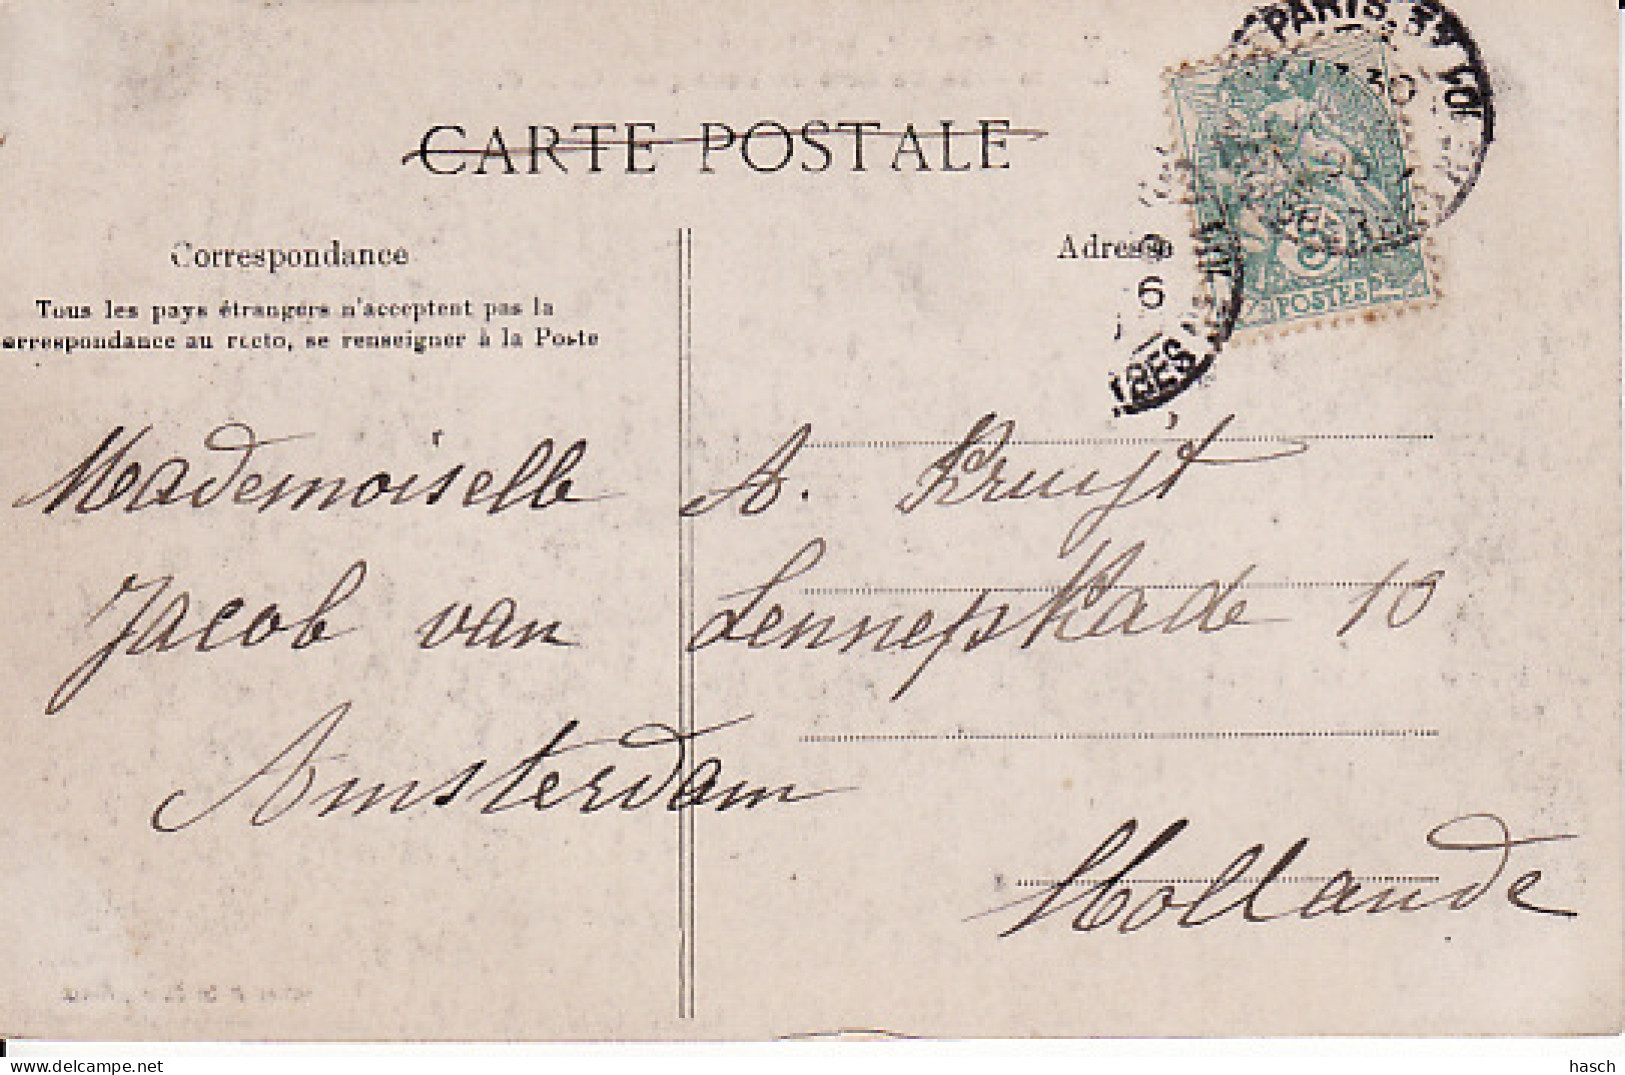 CARTE POSTALE
Correspondance
Adresse
Tous les pays étrangers n'acceptent pas la
correspondance au recto, se renseigner à la Poste
PARIS
30
6
POSTES
Mademoiselle A. Kruijt
Jacob van Lennepskade 10
Amsterdam
Hollande
delcampe.net
hasch